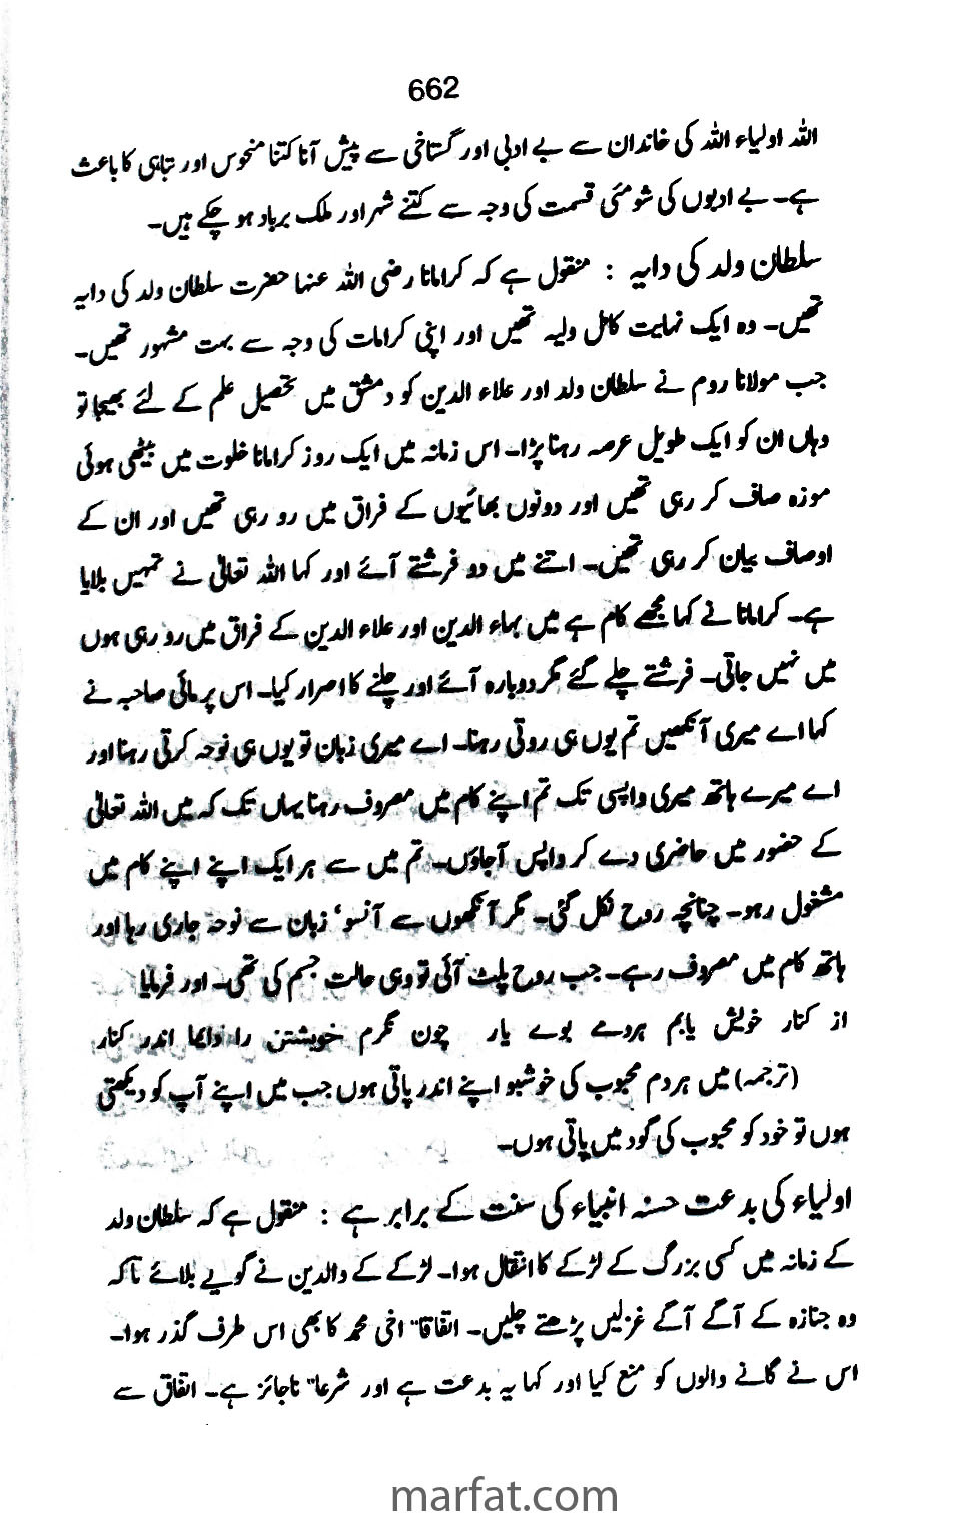 662
اللہ اولیاء اللہ کی خاندان سے بے ادبی اور گستاخی سے پیش آنا کتنا منحوس اور تباہی کا باعث
ہے۔ بے ادبوں کی شومئی قسمت کی وجہ سے کتنے شہر اور ملک برباد ہو چکے ہیں۔
سلطان ولد کی دایہ : منقول ہے کہ کراماتا رضی اللہ عنہا حضرت سلطان ولد کی دایہ
تھیں۔ وہ ایک نہایت کامل ولیہ تھیں اور اپنی کرامات کی وجہ سے بہت مشہور تھیں۔
جب مولانا روم نے سلطان ولد اور علاء الدین کو دمشق میں تحصیل علم کے لئے بھیجا تو
وہاں ان کو ایک طویل عرصہ رہنا پڑا۔ اس زمانہ میں ایک روز کراماتا خلوت میں بیٹھی ہوئی
موزہ صاف کر رہی تھیں اور دونوں بھائیوں کے فراق میں رو رہی تھیں اور ان کے
اوصاف بیان کر رہی تھیں۔ اتنے میں دو فرشتے آئے اور کہا اللہ تعالیٰ نے تمہیں بلایا
ہے۔ کراماتا نے کہا مجھے کام ہے میں بہاء الدین اور علاء الدین کے فراق میں رو رہی ہوں
میں نہیں جاتی۔ فرشتے چلے گئے مگر دوبارہ آئے اور چلنے کا اصرار کیا۔ اس پر مائی صاحبہ نے
کہا اے میری آنکھیں تم یوں ہی روتی رہنا۔ اے میری زبان تو یوں ہی نوحہ کرتی رہنا اور
اے میرے ہاتھ میری واپسی تک تم اپنے کام میں مصروف رہنا یہاں تک کہ میں اللہ تعالیٰ
کے حضور میں حاضری دے کر واپس آجاؤں۔ تم میں سے ہر ایک اپنے اپنے کام میں
مشغول رہو۔ چنانچہ روح نکل گئی۔ مگر آنکھوں سے آنسو‘ زبان سے نوحہ جاری رہا اور
ہاتھ کام میں مصروف رہے۔ جب روح پلٹ آئی تو وہی حالت جسم کی تھی۔ اور فرمایا
از کنار خویش یابم ہردمے بوے یار چون نگرم خویشتن را دایما اندر کنار
(ترجمہ) میں ہردم محبوب کی خوشبو اپنے اندر پاتی ہوں جب میں اپنے آپ کو دیکھتی
ہوں تو خود کو محبوب کی گود میں پاتی ہوں۔
اولیاء کی بدعت حسنہ انبیاء کی سنت کے برابر ہے : منقول ہے کہ سلطان ولد
کے زمانہ میں کسی بزرگ کے لڑکے کا انتقال ہوا۔ لڑکے کے والدین نے گویے بلائے تاکہ
وہ جنازہ کے آگے آگے غزلیں پڑھتے چلیں۔ اتفاقاً اخی محمد کا بھی اس طرف گذر ہوا۔
اس نے گانے والوں کو منع کیا اور کہا یہ بدعت ہے اور شرعاً ناجائز ہے۔ اتفاق سے
marfat.com